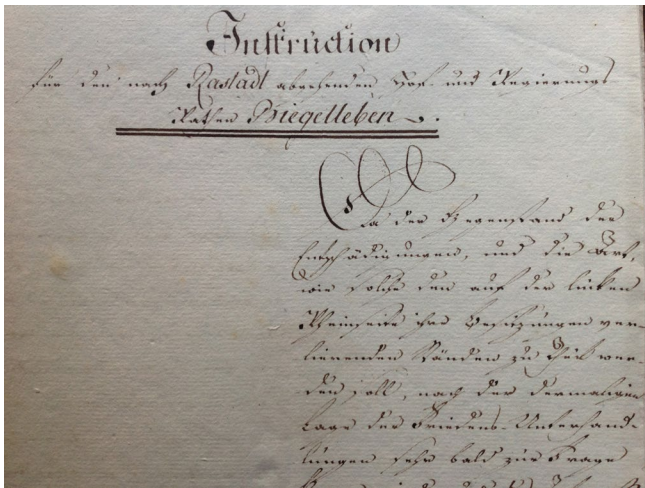 Instruction
für den nach Rastadt abgehenden Hof- und Regierungs
Rathen Biegelleben
Da der Gegenstand der
Entschädigungen, und die Art,
wie solche den auf der linken
Rheinseite ihre Besitzungen ver-
lierenden Ständen zu Theil wer-
den soll, nach der dermaligen
Lage der Friedens-Unterhand-
lungen sehr bald zur Frage